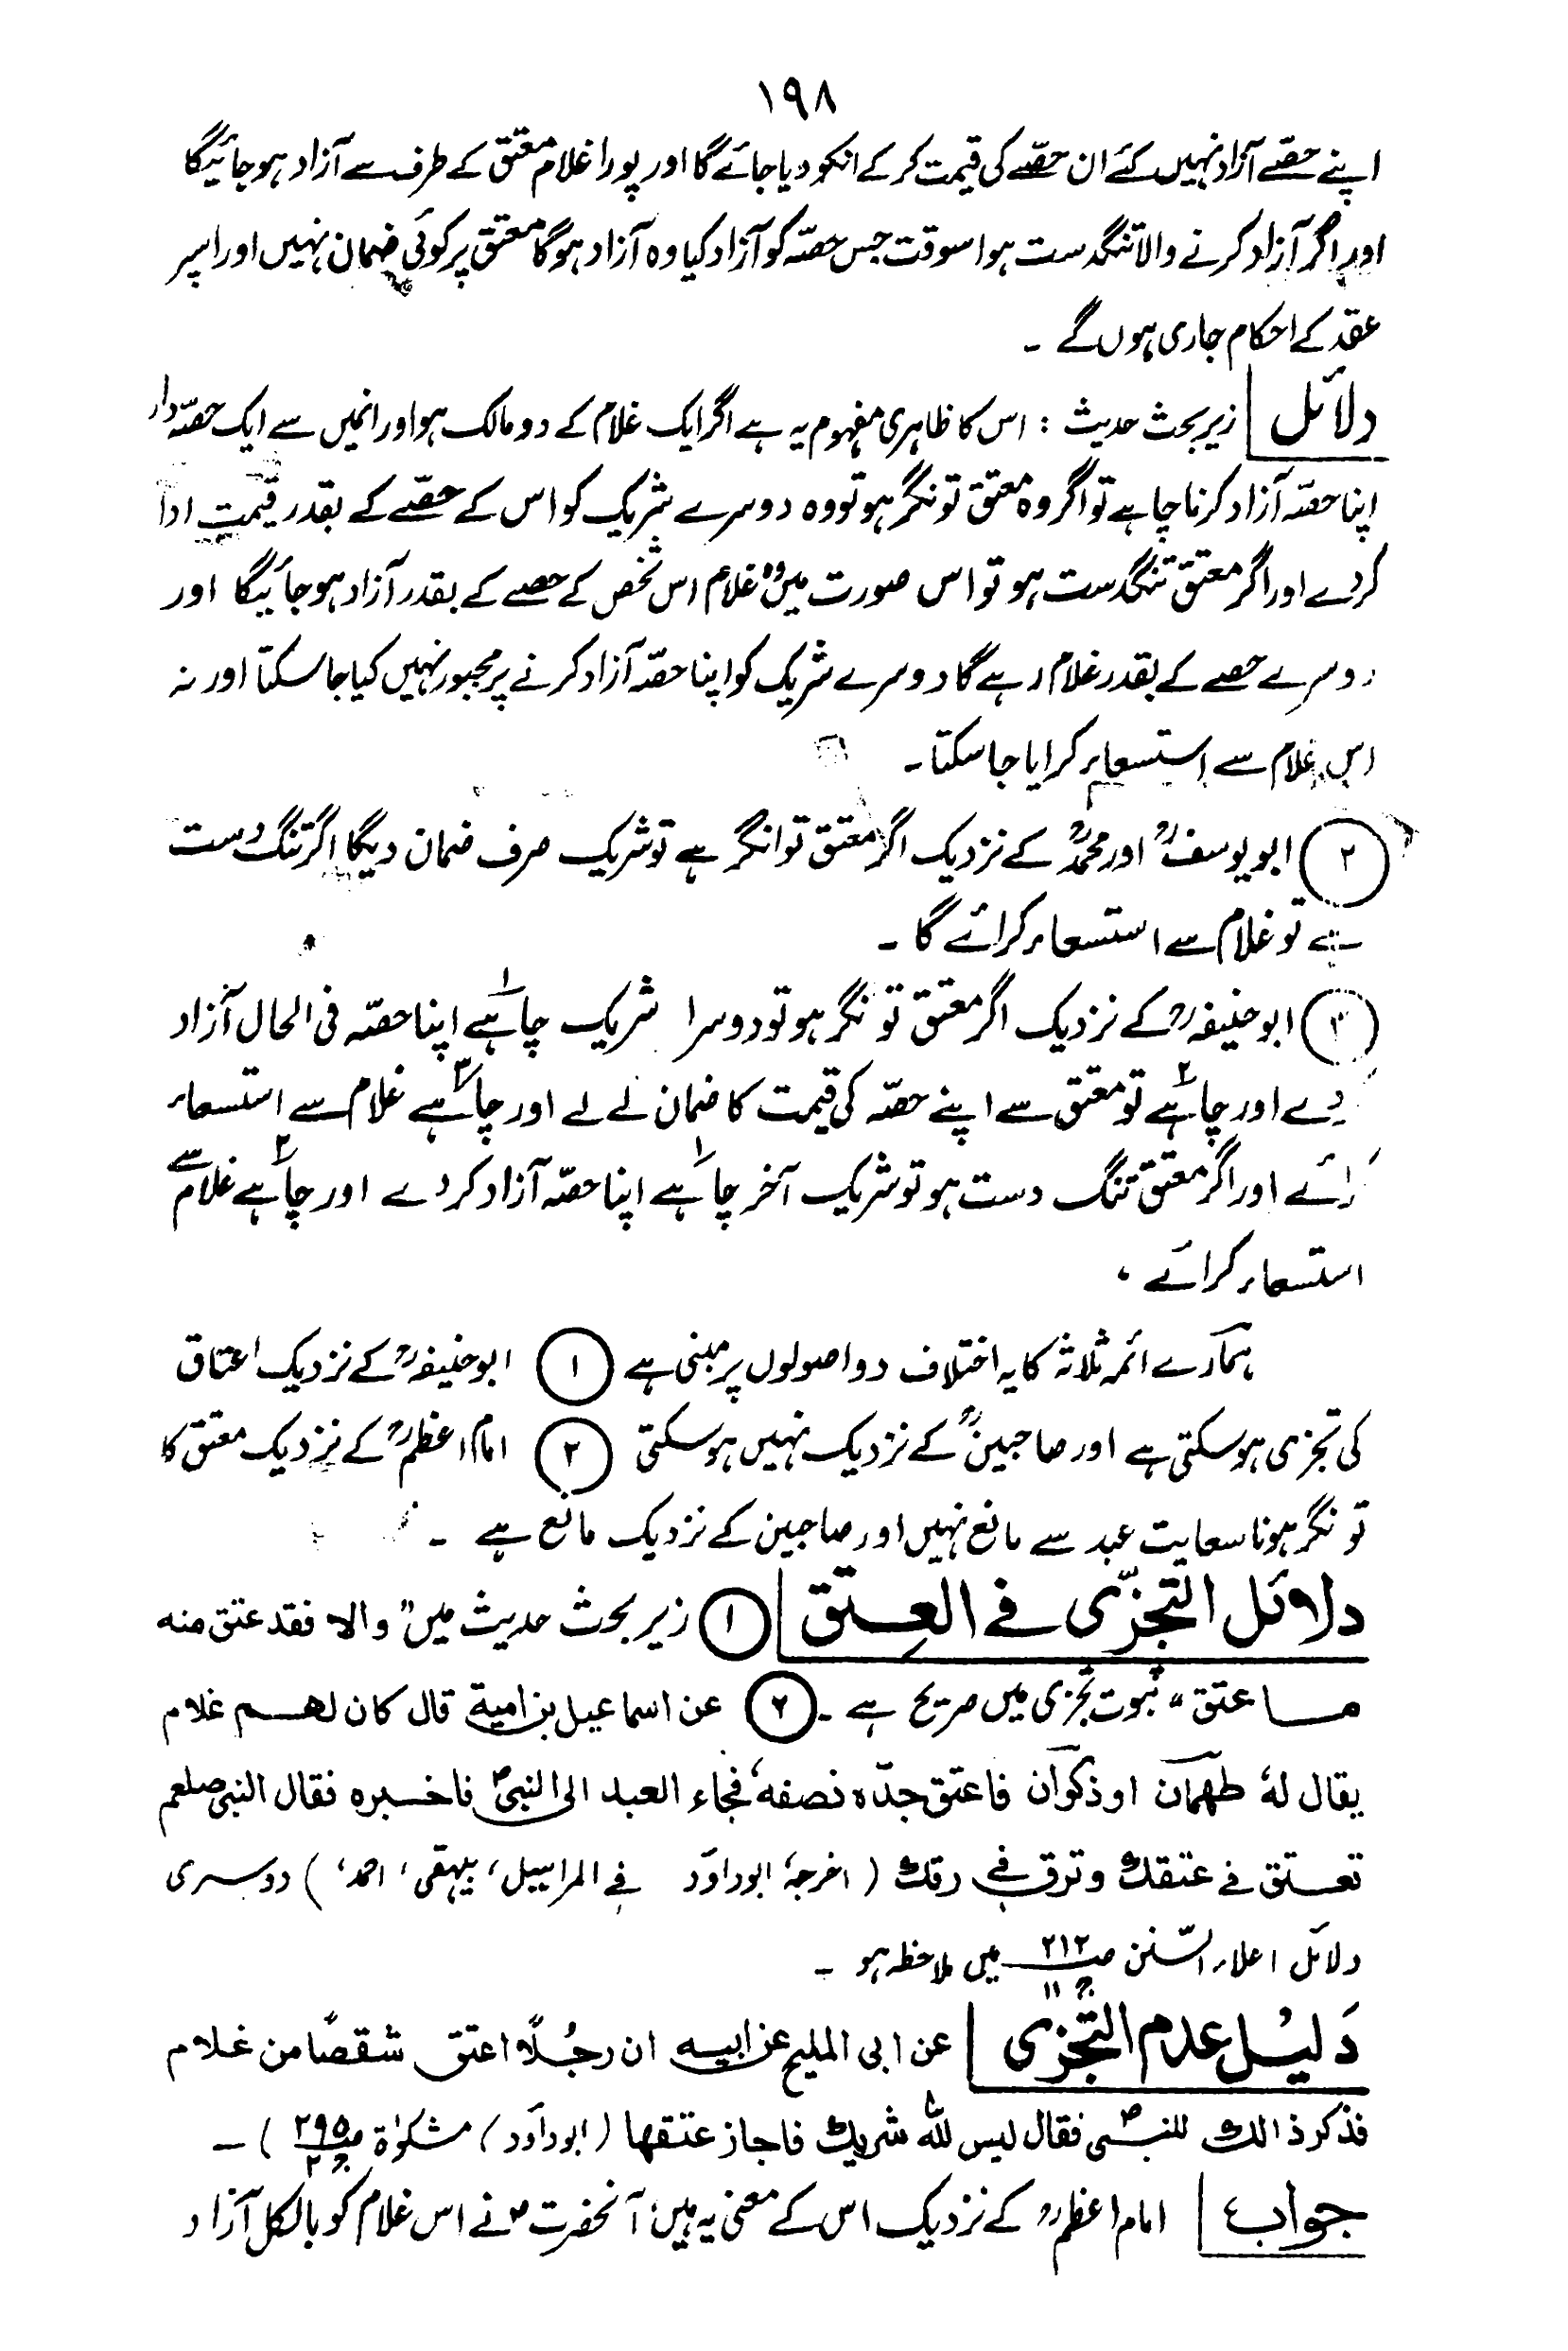 ۱۹۸
اپنے حصّے آزاد نہیں کئے ان حصّے کی قیمت کر کے انکو دیا جائے گا اور پورا غلام معتِق کے طرف سے آزاد ہو جائیگا
اور اگر آزاد کرنے والا تنگدست ہو اسوقت جس حصّہ کو آزاد کیا وہ آزاد ہوگا معتِق پر کوئی ضمان نہیں اور اسپر
عقد کے احکام جاری ہوں گے ۔
دلائل زیر بحث حدیث : اس کا ظاہری مفہوم یہ ہے اگر ایک غلام کے دو مالک ہو اور انمیں سے ایک حصّہ دار
اپنا حصّہ آزاد کرنا چاہے تو اگر وہ معتق تونگر ہو تو وہ دوسرے شریک کو اس کے حصّے کے بقدر قیمت ادا
کردے اور اگر معتق تنگدست ہو تو اس صورت میں وہ غلام اس شخص کے حصے کے بقدر آزاد ہو جائیگا اور
دوسرے حصے کے بقدر غلام رہے گا دوسرے شریک کو اپنا حصّہ آزاد کرنے پر مجبور نہیں کیا جا سکتا اور نہ
اس غلام سے استسعاء کرایا جا سکتا ۔
۲ ابو یوسفؒ اور محمدؒ کے نزدیک اگر معتق توانگر ہے تو شریک صرف ضمان دیگا اگر تنگ دست
ہے تو غلام سے استسعاء کرائے گا ۔
۳ ابو حنیفہؒ کے نزدیک اگر معتق تونگر ہو تو دوسرا شریک ۱ چاہے اپنا حصّہ فی الحال آزاد
دے اور ۲ چاہے تو معتق سے اپنے حصّہ کی قیمت کا ضمان لے لے اور ۳ چاہے غلام سے استسعاء
رائے اور اگر معتق تنگ دست ہو تو شریک آخر ۱ چاہے اپنا حصّہ آزاد کر دے اور ۲ چاہے غلام سے
استسعاء کرائے ،
ہمارے ائمہ ثلاثہ کا یہ اختلاف دو اصولوں پر مبنی ہے ۱ ابو حنیفہؒ کے نزدیک اعتاق
کی تجزی ہو سکتی ہے اور صاحبینؒ کے نزدیک نہیں ہو سکتی ۲ امام اعظمؒ کے نزدیک معتق کا
تونگر ہونا سعایت عبد سے مانع نہیں اور صاحبین کے نزدیک مانع ہے ۔
دلائل التجزّی فے العِتق ۱ زیر بحث حدیث میں " والا فقد عتق منه
ما عتق " ثبوت تجزی میں صریح ہے ۔ ۲ عن اسماعیل بن امیة قال کان لهم غلام
یقال لهٗ طهمان او ذکوان فاعتق جدّه نصفهٗ فجاء العبد الی النبیؐ فاخبره فقال النبی صلعم
تعتق فے عتقك وترق فے رقك ( اخرجہٗ ابوداؤد فے المراسیل، بیہقی، احمد، ) دوسری
دلائل اعلاء السّنن صـ ۲۱۲ ج ۱۱ میں ملاحظہ ہو ۔
دَلیُل عدم التجزی عن ابی الملیح عن ابیه ان رجُلًا اعتق شقصًا من غلام
فذکر ذالك للنبیؐ فقال لیس للّٰه شریك فاجاز عتقها ( ابوداؤد ، مشکوٰۃ صـ ۲۹۵ ج ۲ ) ۔
جواب امام اعظمؒ کے نزدیک اس کے معنی یہ ہیں، آنحضرت ؐ نے اس غلام کو بالکل آزاد